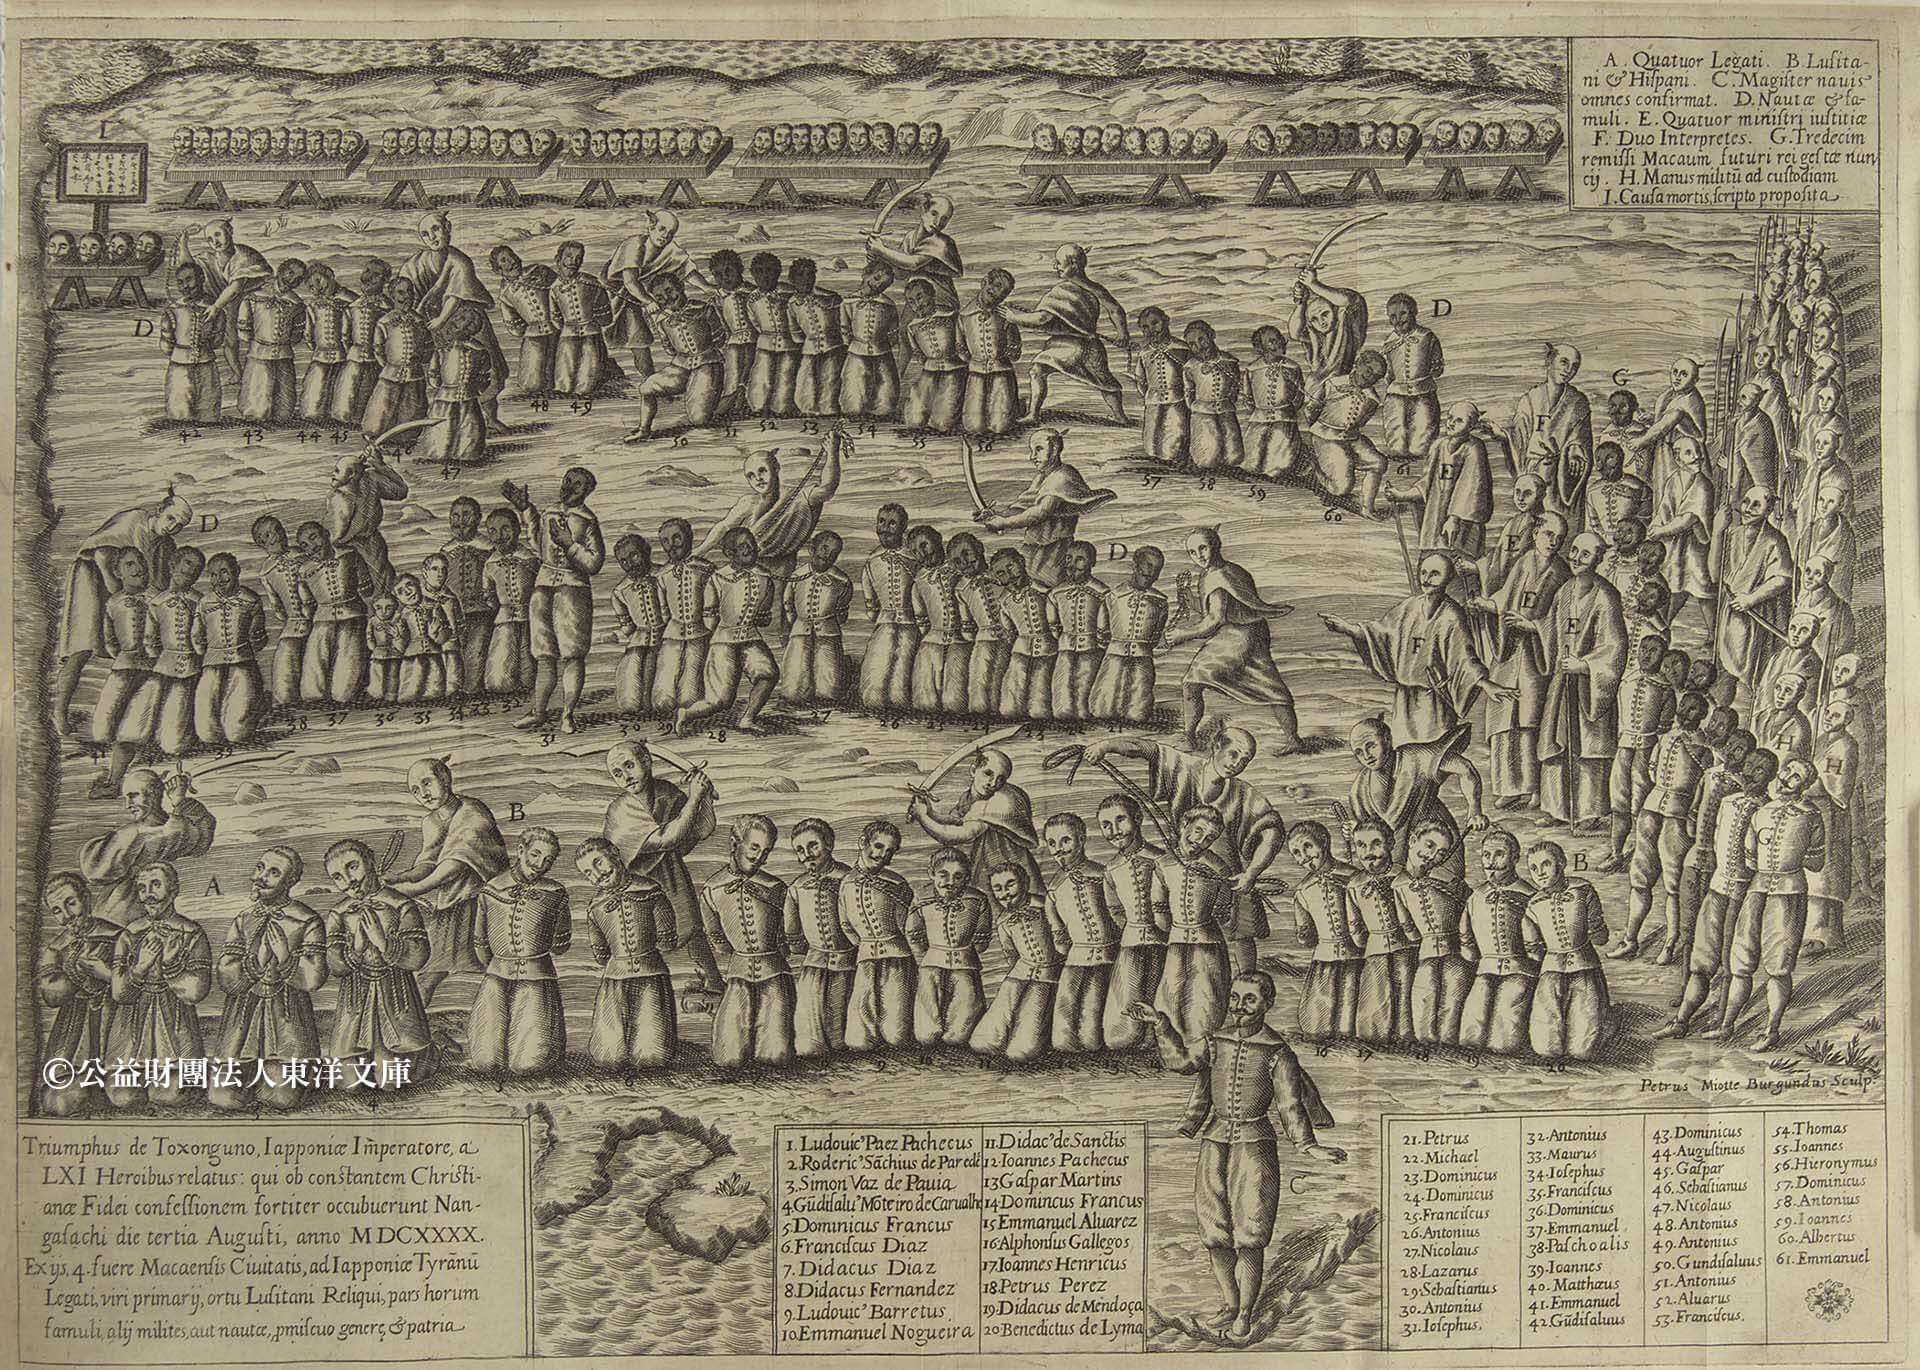 A. Quatuor Legati. B. Lusita-
ni & Hispani. C. Magister navis
omnes confirmat. D. Nautæ & fa-
muli. E. Quatuor ministri iustitiæ
F. Duo Interpretes. G. Tredecim
remissi Macaum futuri rei gestæ nun
cij. H. Manus militũ ad custodiam
I. Causa mortis, scripto proposita
I
D
D
G
42
43
44
45
46
47
48
49
50
51
52
53
54
55
56
57
58
59
60
61
F
E
D
D
E
E
E
F
39
38
37
36
35
34
33
32
31
30
29
28
27
26
25
24
23
22
21
H
H
G
A
B
B
1
2
3
4
5
6
9
10
11
13
14
16
17
18
19
20
C
15
©公益財團法人東洋文庫
Petrus Miotte Burgundus Sculp.
Triumphus de Toxonguno, Iapponiæ Im̃peratore, a
LXI Heroibus relatus: qui ob constantem Christi-
anæ Fidei confessionem fortiter occubuerunt Nan-
gasachi die tertia Augusti, anno MDCXXXX.
Ex ijs, 4. fuere Macaensis Civitatis, ad Iapponiæ Tyrãnũ
Legati, viri primarij, ortu Lusitani Reliqui, pars horum
famuli, alij milites, aut nautæ, ꝓmiscuo genere, & patria
1. Ludovic' Paez Pachecus
2. Roderic' Sãchius de Paredẽ
3. Simon Vaz de Pavia
4. Gũdisalu' Moteiro de Carvalho
5. Dominicus Francus
6. Franciscus Diaz
7. Didacus Diaz
8. Didacus Fernandez
9. Ludovic' Barretus
10. Emmanuel Nogueira
11. Didac' de Sanctis
12. Ioannes Pachecus
13 Gaspar Martins
14 Domincus Francus
15 Emmanuel Aluarez
16. Alphonsus Gallegos
17. Ioannes Henricus
18. Petrus Perez
19. Didacus de Mendoça
20 Benedictus de Lyma
21. Petrus
22. Michael
23. Dominicus
24. Dominicus
25. Franciscus
26. Antonius
27. Nicolaus
28. Lazarus
29. Sebastianus
30. Antonius
31. Iosephus.
32. Antonius
33. Maurus
34. Iosephus
35. Franciscus
36. Dominicus
37. Emmanuel
38. Paschoalis
39. Ioannes
40. Matthæus
41. Emmanuel
42. Gũdisaluus
43. Dominicus
44. Augustinus
45. Gaspar
46. Sebastianus
47. Nicolaus
48. Antonius
49. Antonius
50. Gundisaluus
51. Antonius
52. Aluarus
53. Franciscus.
54. Thomas
55. Ioannes
56. Hieronymus
57. Dominicus
58. Antonius
59. Ioannes
60. Albertus
61. Emmanuel